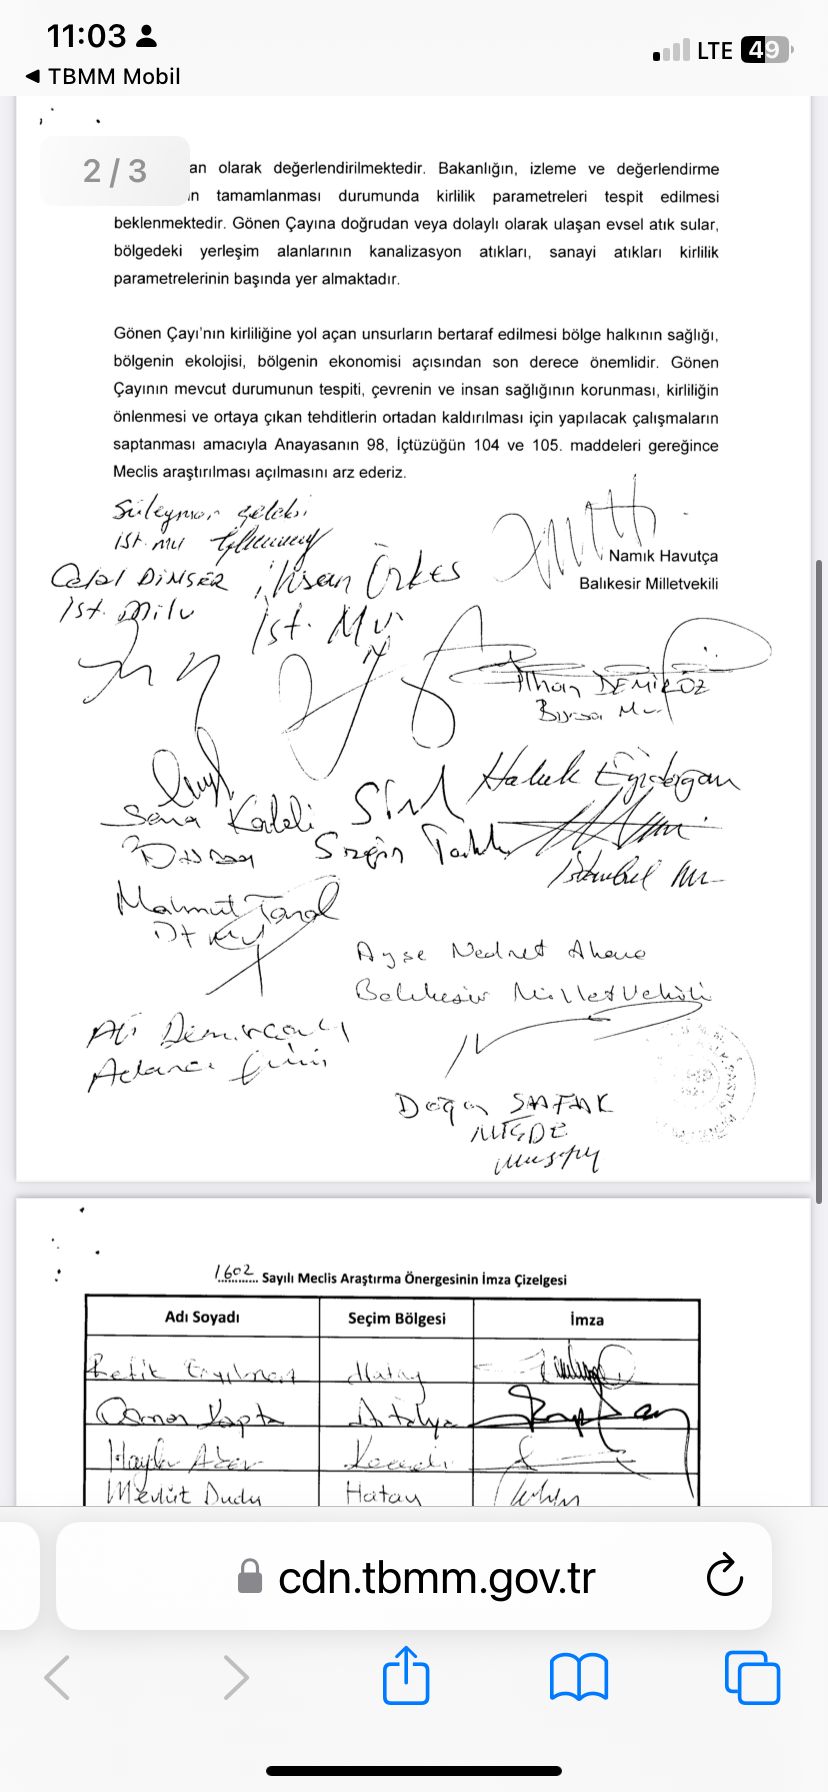 11:03
LTE 49
TBMM Mobil
2 / 3
an olarak değerlendirilmektedir. Bakanlığın, izleme ve değerlendirme
n tamamlanması durumunda kirlilik parametreleri tespit edilmesi
beklenmektedir. Gönen Çayına doğrudan veya dolaylı olarak ulaşan evsel atık sular,
bölgedeki yerleşim alanlarının kanalizasyon atıkları, sanayi atıkları kirlilik
parametrelerinin başında yer almaktadır.
Gönen Çayı'nın kirliliğine yol açan unsurların bertaraf edilmesi bölge halkının sağlığı,
bölgenin ekolojisi, bölgenin ekonomisi açısından son derece önemlidir. Gönen
Çayının mevcut durumunun tespiti, çevrenin ve insan sağlığının korunması, kirliliğin
önlenmesi ve ortaya çıkan tehditlerin ortadan kaldırılması için yapılacak çalışmaların
saptanması amacıyla Anayasanın 98, İçtüzüğün 104 ve 105. maddeleri gereğince
Meclis araştırılması açılmasını arz ederiz.
Süleyman Çelebi
İst. Mv
Namık Havutça
Balıkesir Milletvekili
Celal DİNÇER
İst. Milv
İhsan Özkes
İst. Mv
İlhan DEMİRÖZ
Bursa Mv
Haluk Eyidoğan
İstanbul Mv
Sena Kaleli
Bursa
Mahmut Tanal
İst Mv
Ayşe Nedret Akova
Balıkesir Milletvekili
Ali Demirçalı
Adana
Doğan ŞAFAK
NİĞDE
1602 Sayılı Meclis Araştırma Önergesinin İmza Çizelgesi
Adı Soyadı Seçim Bölgesi İmza
Refik Eryılmaz Hatay
Osman Kaptan Antalya
Haydar Akar Kocaeli
Mevlüt Dudu Hatay
cdn.tbmm.gov.tr